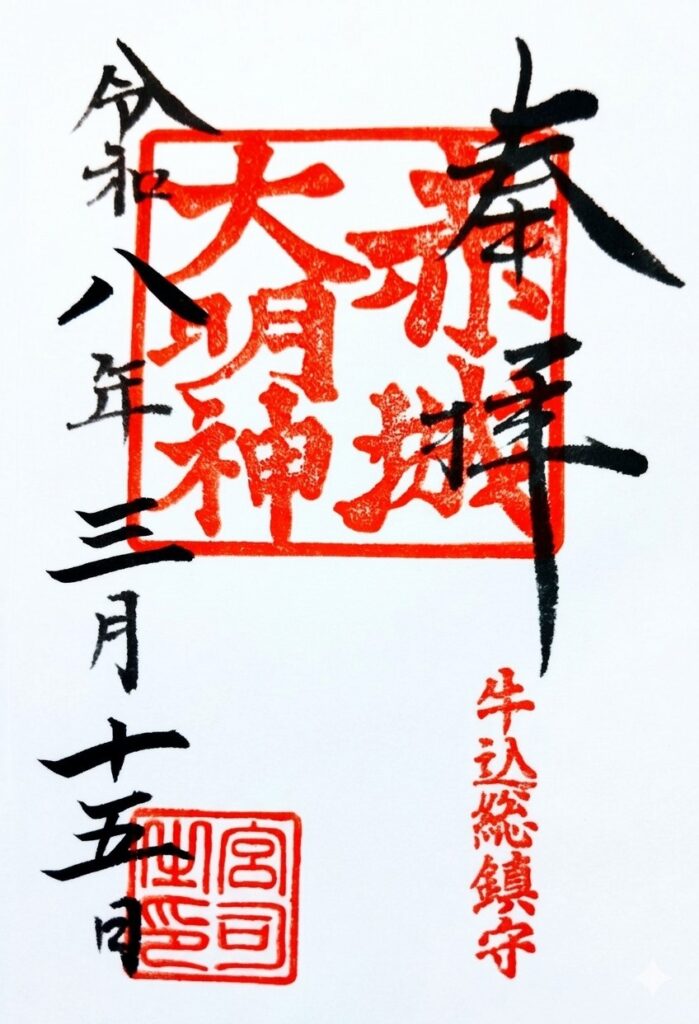 奉拝
牛込総鎮守
赤城
大明神
令和八年三月十五日
宮司
之印